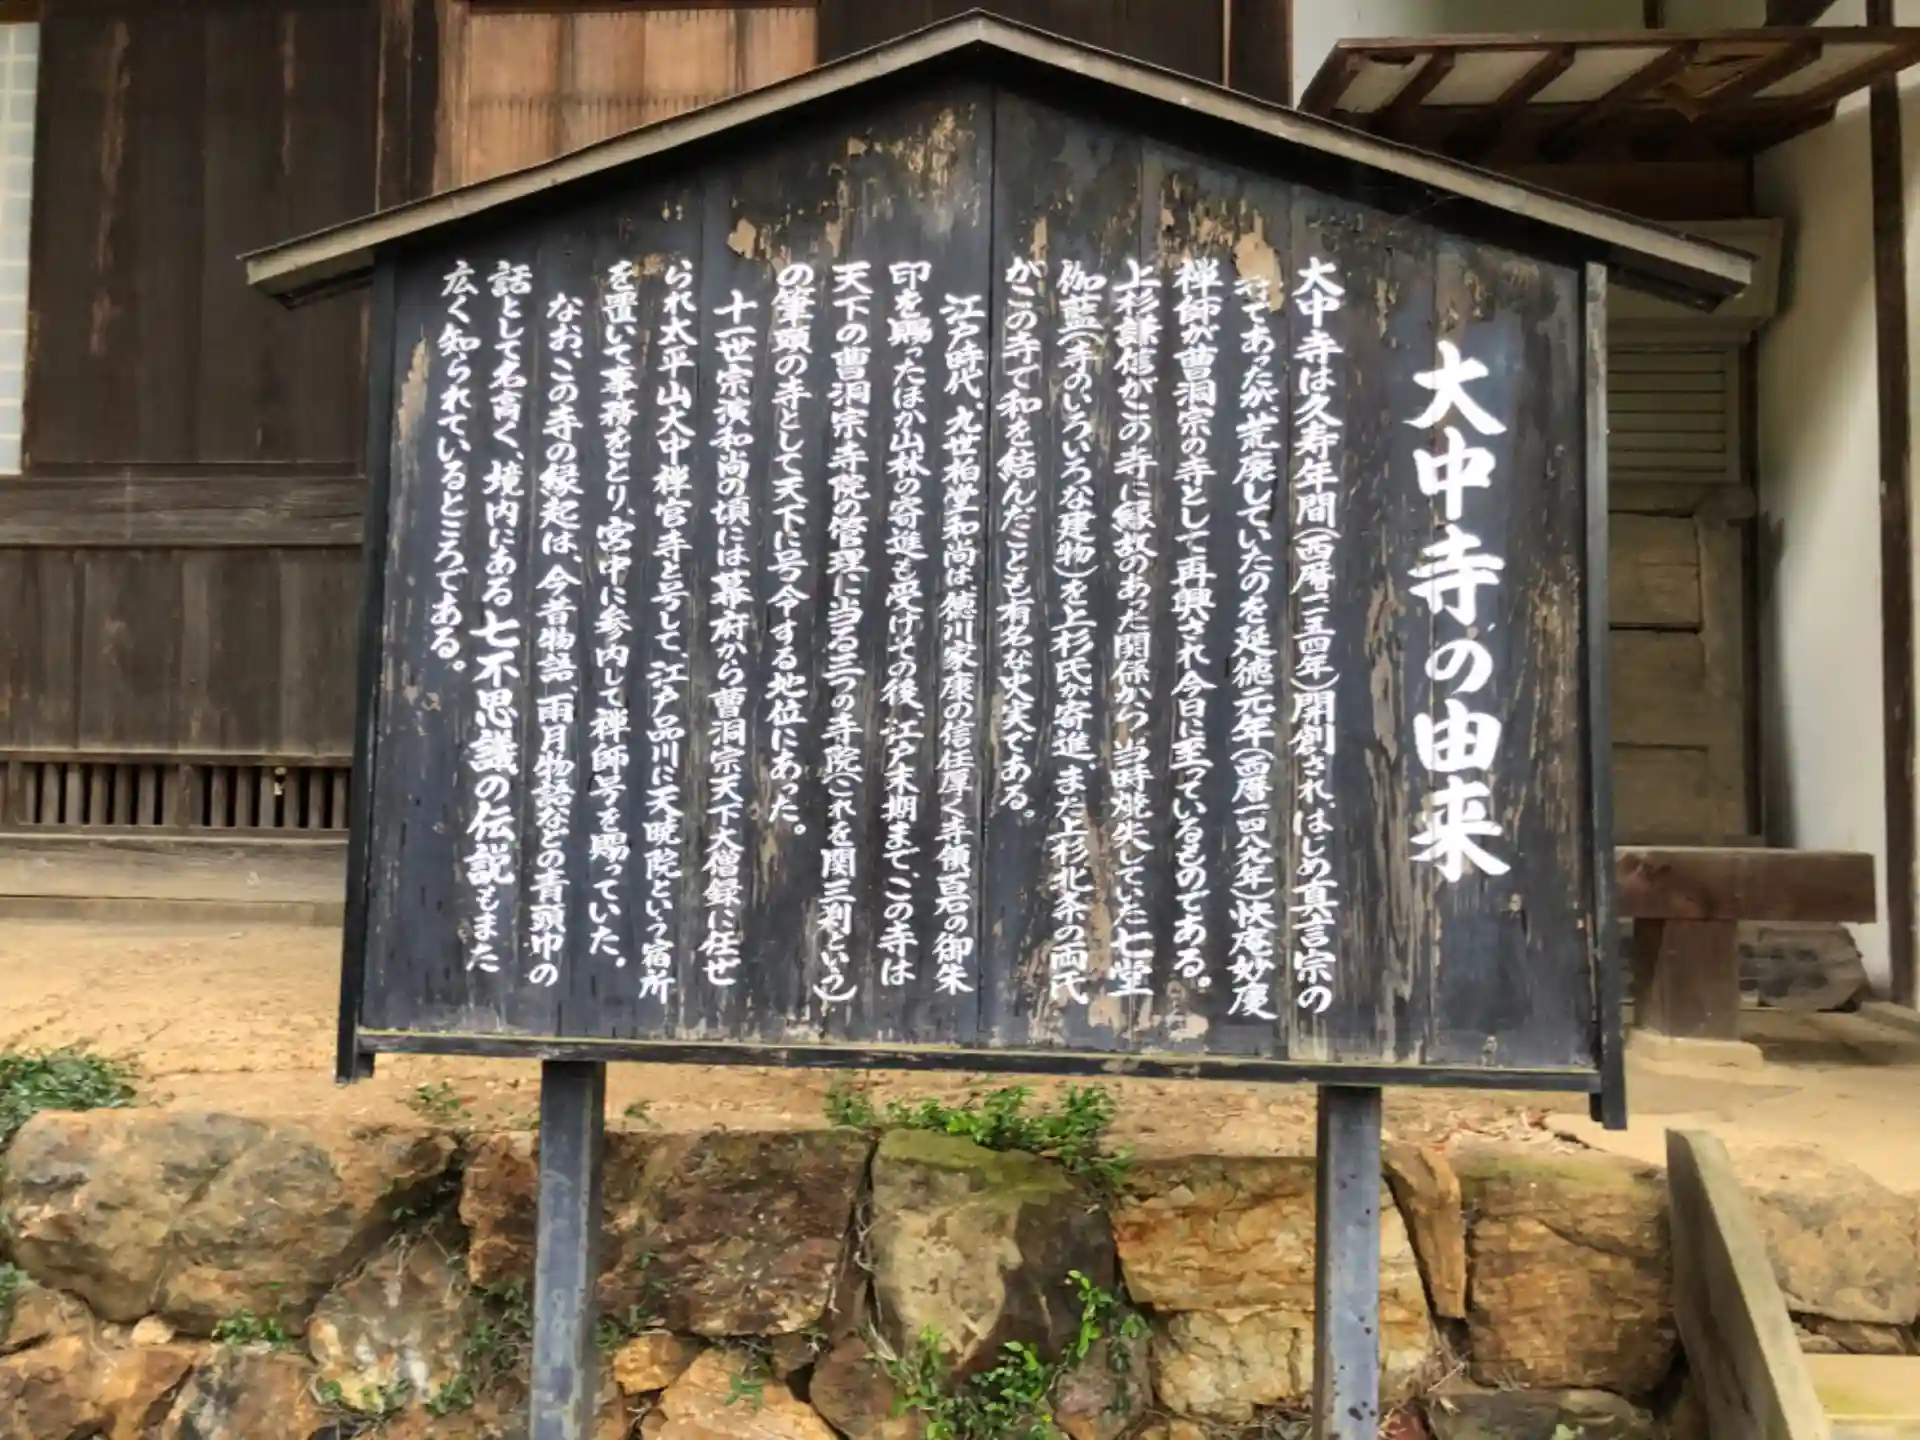 大中寺の由来
大中寺は久寿年間(西暦一一五四年)開創され、はじめ真言宗の
寺であったが、荒廃していたのを延徳元年(西暦一四八九年)快庵妙慶
禅師が曹洞宗の寺として再興され今日に至っているものである。
上杉謙信がこの寺に縁故のあった関係から、当時焼失していた七堂
伽藍(寺のいろいろな建物)を上杉氏が寄進、また上杉北条の両氏
がこの寺で和を結んだことも有名な史実である。
江戸時代、九世柏堂和尚は、徳川家康の信任厚く寺領百石の御朱
印を賜ったほか山林の寄進も受けその後、江戸末期まで、この寺は
天下の曹洞宗寺院の管理に当る三つの寺院(これを関三刹という)
の筆頭の寺として天下に号令する地位にあった。
十一世宗漢和尚の頃には幕府から曹洞宗天下大僧録に任ぜ
られ太平山大中禅官寺と号して、江戸品川に天暁院という宿所
を置いて事務をとり、宮中に参内して禅師号を賜っていた。
なお、この寺の縁起は、今昔物語、雨月物語などの青頭巾の
話として名高く、境内にある七不思議の伝説もまた
広く知られているところである。